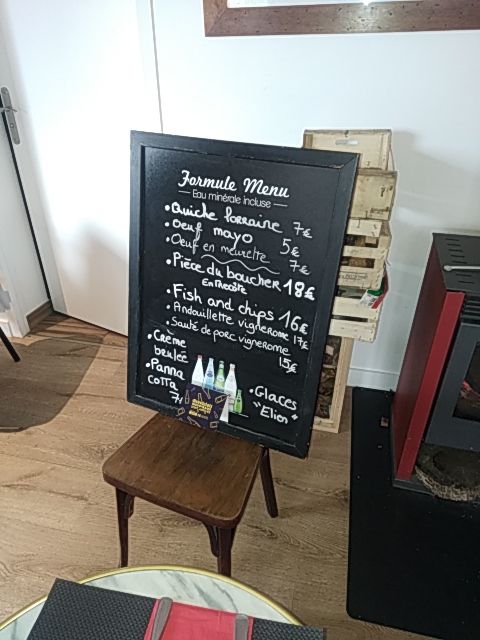 Formule Menu
Eau minérale incluse
• Quiche Lorraine 7€
• Oeuf mayo 5€
• Oeuf en meurette 7€
• Pièce du boucher 18€
Entrecôte
• Fish and chips 16€
• Andouillette vigneronne 17€
• Sauté de porc vigneronne
15€
• Crème
brulée
• Panna
cotta
7€
• Glaces
"Elien"